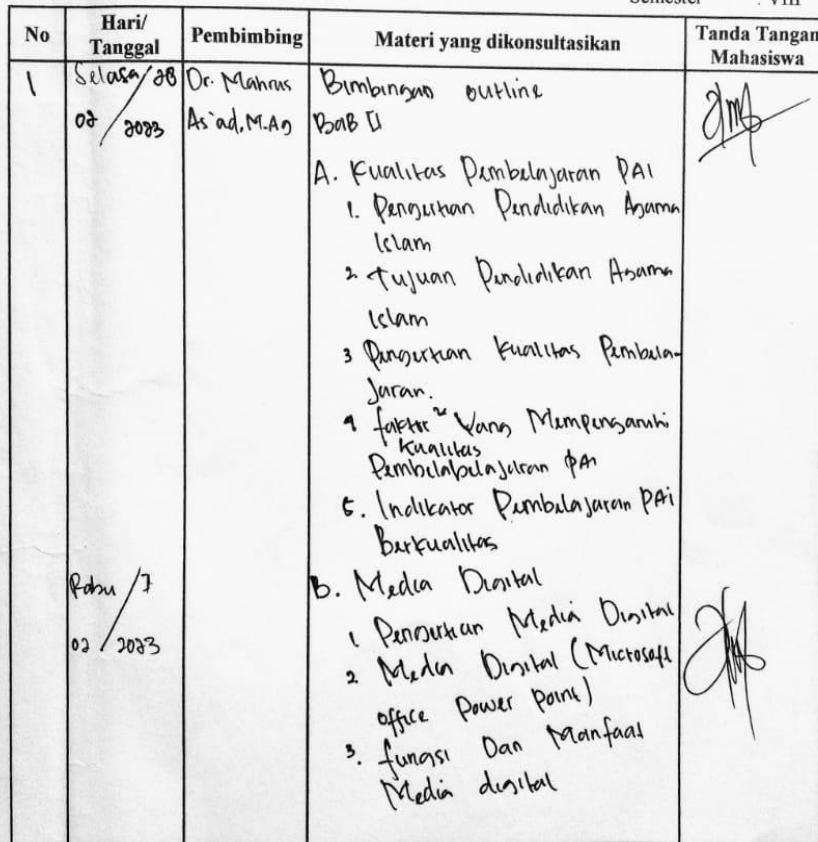 Semester : VIII
No
Hari/
Tanggal
Pembimbing
Materi yang dikonsultasikan
Tanda Tangan
Mahasiswa
1
Selasa/28
02/2023
Dr. Mahrus
As'ad, M.Ag
Bimbingan outline
BAB II
A. Kualitas Pembelajaran PAI
1. Pengertian Pendidikan Agama
Islam
2 Tujuan Pendidikan Agama
Islam
3 Pengertian Kualitas Pembela-
Jaran.
4 faktor² Yang Mempengaruhi
Kualitas
Pembelabelajaran PAI
5. Indikator Pembelajaran PAi
Berkualitas
Rabu /
02 / 2023
B. Media Digital
1 Pengertian Media Digital
2 Media Digital (Microsoft
office Power Point)
3. fungsi Dan Manfaat
Media digital